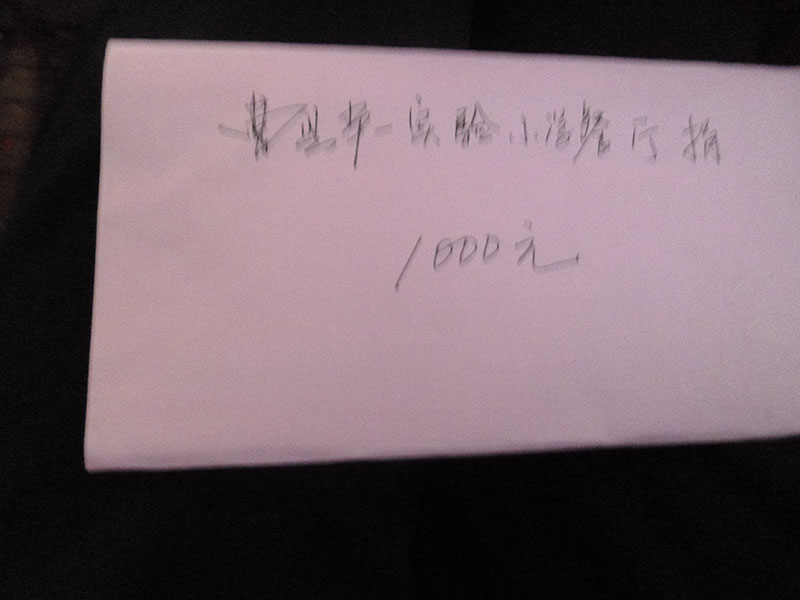 县第一实验小学餐厅捐
1000元